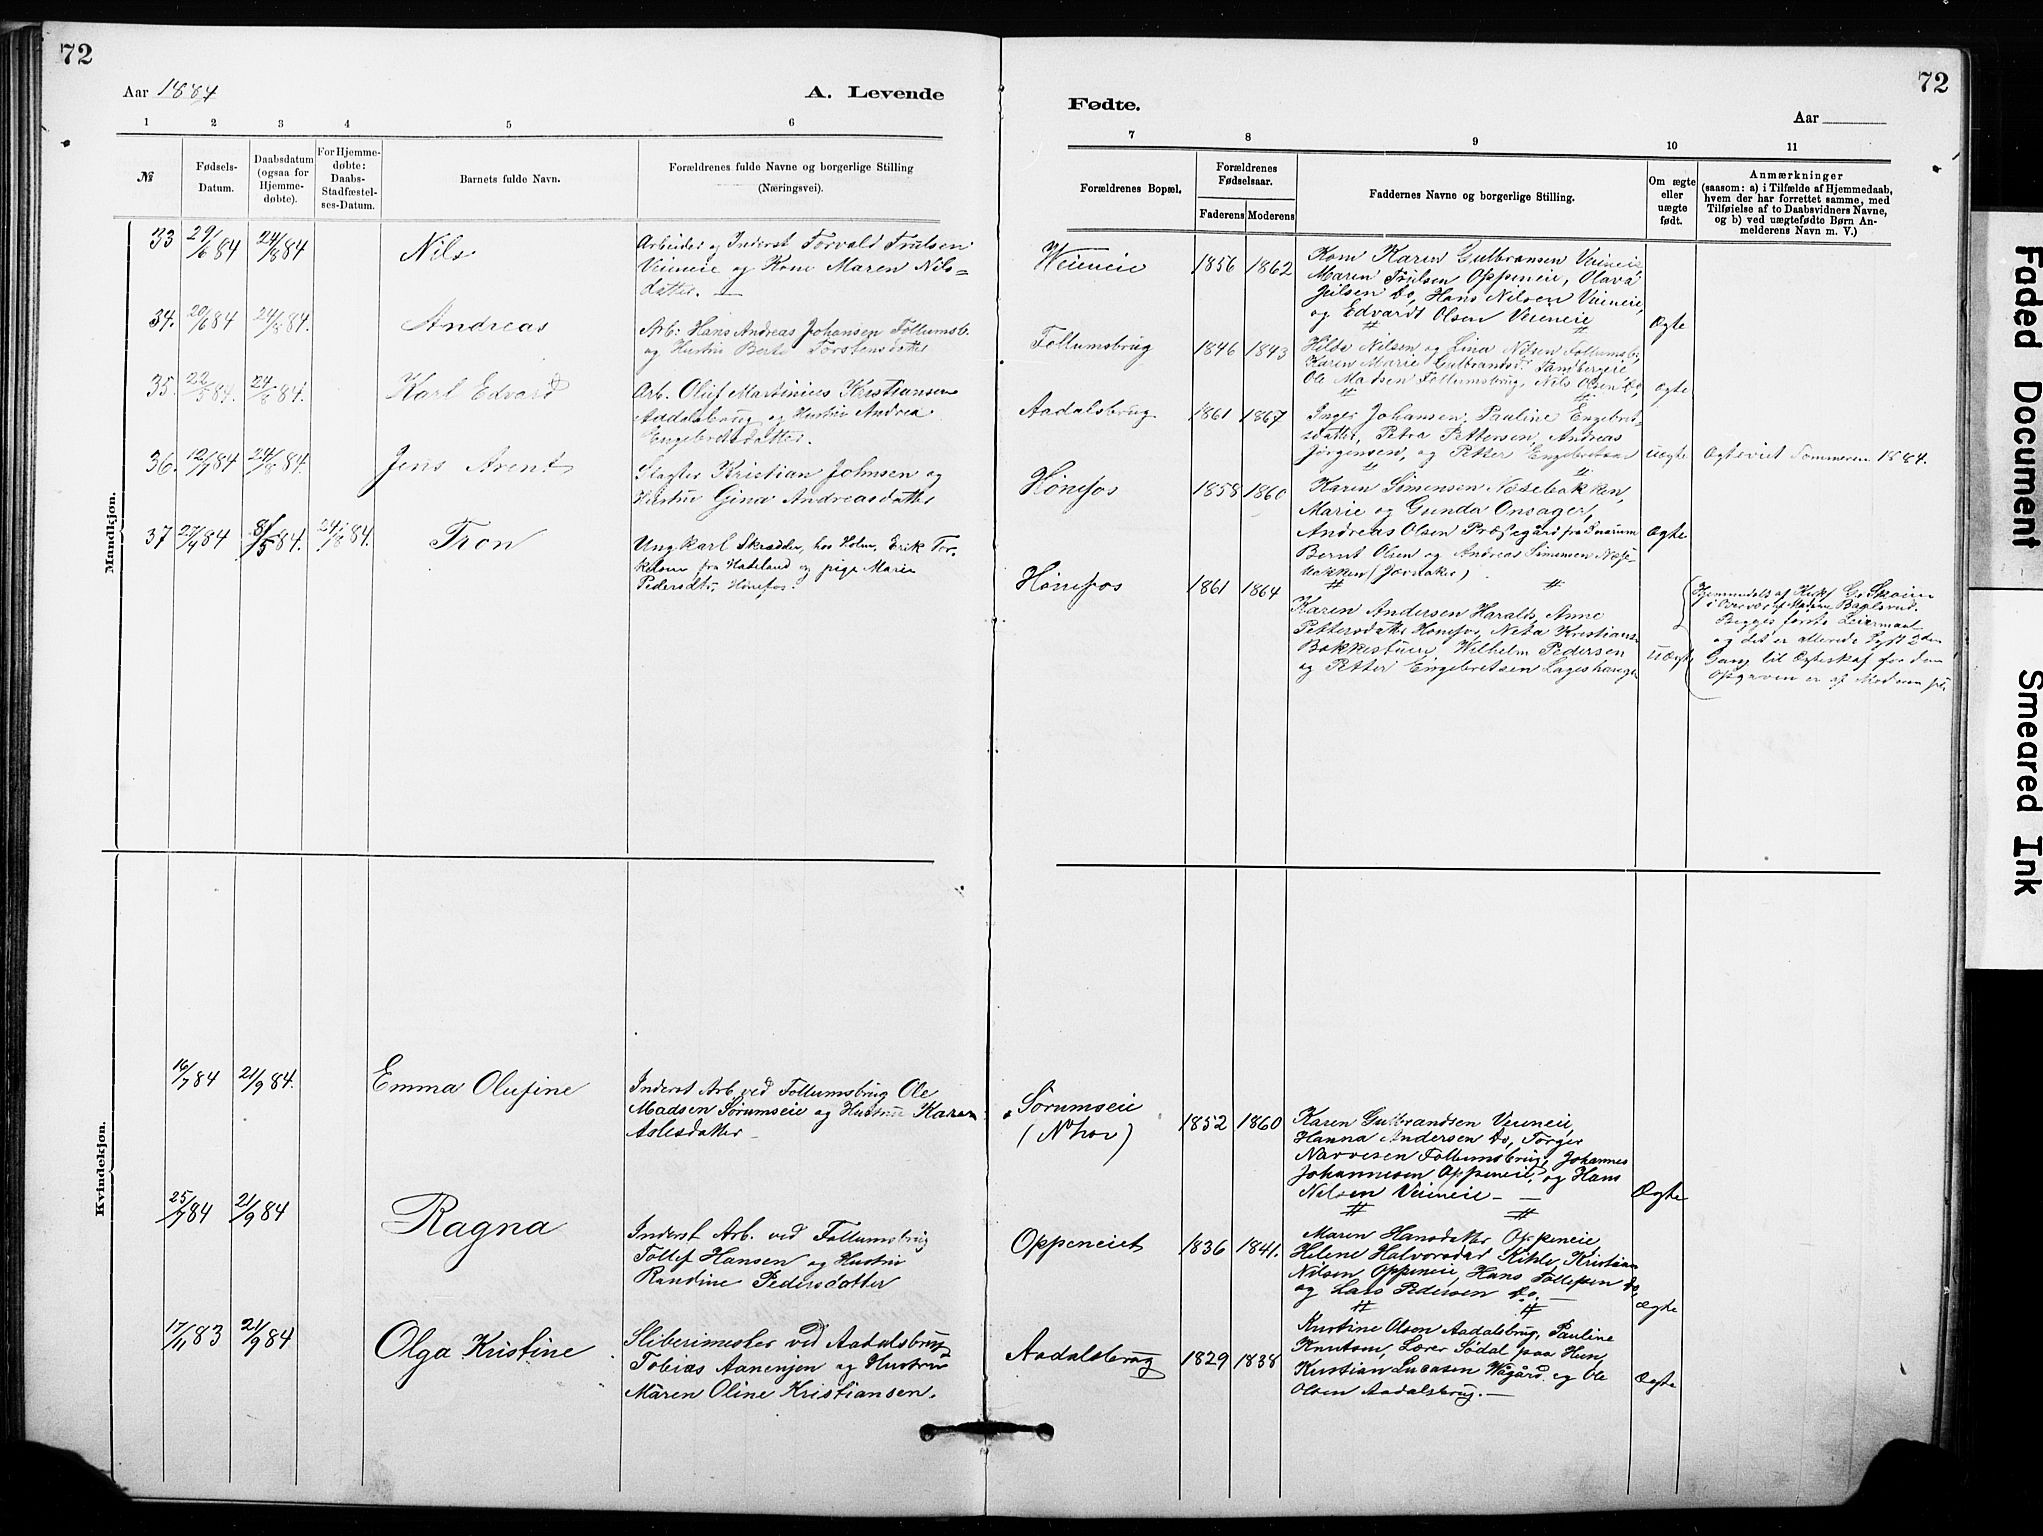 72
Aar 1884
A. Levende
1 2 3 4 5 6
№
Fødsels-
Datum.
Daabsdatum
(ogsaa for
Hjemme-
døbte).
For Hjemme-
døbte:
Daabs-
Stadfæstel-
ses-Datum.
Barnets fulde Navn.
Forældrenes fulde Navne og borgerlige Stilling
(Næringsvei).
Mandkjøn.
33 29/6 84 24/8 84 Nils
Arbeider og Inderst Torvald Trulsen
Veieneie og Kone Maren Nils=
datter. —
34. 20/6 84 24/8 84. Andreas
Arb: Hans Andreas Johansen Follumsb.
og Hustru Berte Torstensdatter
35. 22/5 84. 24/8 84. Karl Edvard
Arb. Oluf Martinius Kristiansen
Aadalsbrug og Hustru Andrea
Engebretsdatter.
36. 12/7 84 24/8 84. Jens Arent
Slagter Kristian Johnsen og
Hustru Gina Andreasdatter
37 27/4 84 8/5 84. 24/8 84. Tron
Ungkarl Skrædder, hos Holm, Erik Tor-
kelsen fra Hadeland og pige Marie
Pedersdtr, Hønefos.
Kvindekjøn.
16/7 84 21/9 84. Emma Olufine
Inderst Arb. ved Follumsbrug Ole
Madsen Sørumseie og Hustru Karen
Aslesdatter —
25/7 84 21/9 84 Ragna
Inderst Arb. ved Follumsbrug
Tollef Hansen og Hustru
Randine Pedersdatter
17/11 83 21/9 84 Olga Kristine
Sliberimester ved Aadalsbrug
Tobias Aanensen og Hustru
Maren Oline Kristiansen.
72
Fødte.
Aar
7 8 9 10 11
Forældrenes Bopæl.
Forældrenes
Fødselsaar.
Faderens Moderens
Faddernes Navne og borgerlige Stilling.
Om ægte
eller
uægte
født.
Anmærkninger
(saasom: a) i Tilfælde af Hjemmedaab,
hvem der har forrettet samme, med
Tilføielse af to Daabsvidners Navne,
og b) ved uægtefødte Børn An-
melderens Navn m. V.)
Veieneie 1856 1862
Kone Karen Gulbransen Veieneie
Maren Trulsen Oppeneie, Olava
Do, Hans Nilsen Veieneie,
og Edvardt Olsen Veieneie
Ægte
Follumsbrug 1846 1843
Hilda Nilsen og Lina Nilsen Follumsb,
Karen Marie Gulbrandsd.
Ole Madsen Follumsbrug, Nils Olsen Do,
Ægte
Aadalsbrug 1861 1867
Inger Johansen, Pauline Engebret-
sdatter, Petra Pettersen, Andreas
Jørgensen, og Petter Engebretsen
Uægte Ægteviet Sommeren 1884.
Hønefos 1858 1860
Karen Simensen Næsebakken,
Marie og Gunda Onsager,
Andreas Olsen Præstegård fra
Bernt Olsen og Andreas Simensen Næse-
bakken (Jævnaker)
Ægte
Hønefos 1861 1864
Karen Andersen Haralds, Anne
Pettersdatter Hønefos, Neta Kristians
Bakkestuen, Wilhelm Pedersen
og Petter Engebretsen
Uægte
Hjemmedøbt af
Begges første Leiermaal
og det er allerede lyst 2den
Gang til Ægteskab for dem
Opgaven er af Moderen selv
Sørumseie
(N hov)
1852 1860
Karen Gulbrandsen Veieneie,
Hanna Andersen Do, Torger
Narvesen Follumsbrug, Johannes
Johannesen Oppeneie, og Hans
Nilsen Veieneie —
Ægte
Oppeneiet 1836 1841.
Maren Hansdatter Oppeneie
Helene Halvorsdat Kihle, Kristian
Nilsen Oppeneie, Hans Tollefsen Do,
og Lars Pedersen Do. —
Ægte
Aadalsbrug 1829 1838
Kristine Olsen Aadalsbrug, Pauline
Knutsen, Lærer Sødal paa Hen,
Kristian Lucasen Wågård og Ole
Olsen Aadalsbrug. —
Ægte
Faded Document
Smeared Ink